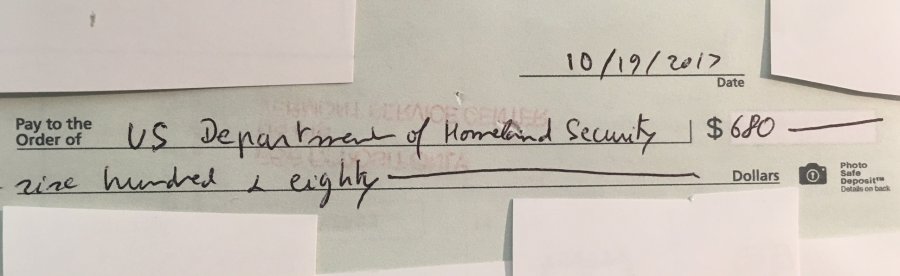 10/19/2017
Date
VERMONT SERVICE CENTER
Pay to the
Order of US Department of Homeland Security $ 680
hundred & eighty Dollars
Photo
Safe
Deposit™
Details on back